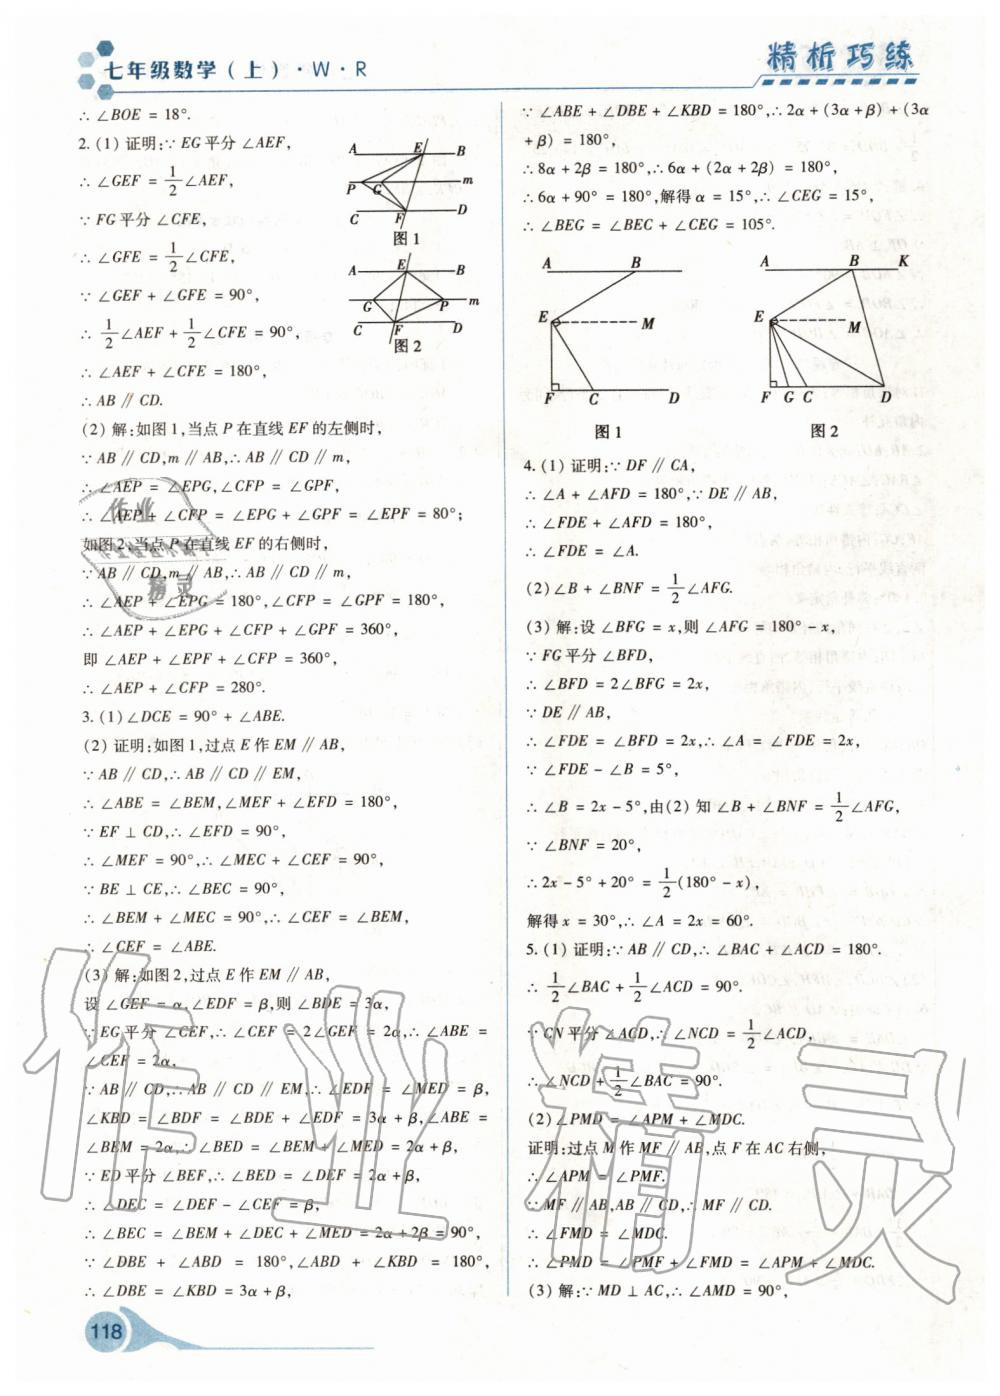 七年级数学(上)·W·R
精析巧练
∴ ∠BOE = 18°.
2. (1) 证明:∵ EG 平分 ∠AEF,
∴ ∠GEF = 1/2∠AEF,
∵ FG 平分 ∠CFE,
∴ ∠GFE = 1/2∠CFE,
∵ ∠GEF + ∠GFE = 90°,
∴ 1/2∠AEF + 1/2∠CFE = 90°,
∴ ∠AEF + ∠CFE = 180°,
∴ AB // CD.
A E B
P G m
C F D
图 1
A E B
G P m
C F D
图 2
(2) 解:如图 1,当点 P 在直线 EF 的左侧时,
∵ AB // CD,m // AB,∴ AB // CD // m,
∴ ∠AEP = ∠EPG,∠CFP = ∠GPF,
∴ ∠AEP + ∠CFP = ∠EPG + ∠GPF = ∠EPF = 80°;
如图 2,当点 P 在直线 EF 的右侧时,
∵ AB // CD,m // AB,∴ AB // CD // m,
∴ ∠AEP + ∠EPG = 180°,∠CFP + ∠GPF = 180°,
∴ ∠AEP + ∠EPG + ∠CFP + ∠GPF = 360°,
即 ∠AEP + ∠EPF + ∠CFP = 360°,
∴ ∠AEP + ∠CFP = 280°.
3. (1)∠DCE = 90° + ∠ABE.
(2) 证明:如图 1,过点 E 作 EM // AB,
∵ AB // CD,∴ AB // CD // EM,
∴ ∠ABE = ∠BEM,∠MEF + ∠EFD = 180°,
∵ EF ⊥ CD,∴ ∠EFD = 90°,
∴ ∠MEF = 90°,∴ ∠MEC + ∠CEF = 90°,
∵ BE ⊥ CE,∴ ∠BEC = 90°,
∴ ∠BEM + ∠MEC = 90°,∴ ∠CEF = ∠BEM,
∴ ∠CEF = ∠ABE.
(3) 解:如图 2,过点 E 作 EM // AB,
设 ∠GEF = α,∠EDF = β,则 ∠BDE = 3α,
∵ EG 平分 ∠CEF,∴ ∠CEF = 2∠GEF = 2α,∴ ∠ABE =
∠CEF = 2α,
∵ AB // CD,∴ AB // CD // EM,∴ ∠EDF = ∠MED = β,
∠KBD = ∠BDF = ∠BDE + ∠EDF = 3α + β,∠ABE =
∠BEM = 2α,∴ ∠BED = ∠BEM + ∠MED = 2α + β,
∵ ED 平分 ∠BEF,∴ ∠BED = ∠DEF = 2α + β,
∴ ∠DEC = ∠DEF − ∠CEF = β,
∴ ∠BEC = ∠BEM + ∠DEC + ∠MED = 2α + 2β = 90°,
∵ ∠DBE + ∠ABD = 180°,∠ABD + ∠KBD = 180°,
∴ ∠DBE = ∠KBD = 3α + β,
118
∵ ∠ABE + ∠DBE + ∠KBD = 180°,∴ 2α + (3α + β) + (3α
+ β) = 180°,
∴ 8α + 2β = 180°,∴ 6α + (2α + 2β) = 180°,
∴ 6α + 90° = 180°,解得 α = 15°,∴ ∠CEG = 15°,
∴ ∠BEG = ∠BEC + ∠CEG = 105°.
A B
E M
F C D
图 1
A B K
E M
F G C D
图 2
4. (1) 证明:∵ DF // CA,
∴ ∠A + ∠AFD = 180°,∵ DE // AB,
∴ ∠FDE + ∠AFD = 180°,
∴ ∠FDE = ∠A.
(2)∠B + ∠BNF = 1/2∠AFG.
(3) 解:设 ∠BFG = x,则 ∠AFG = 180° − x,
∵ FG 平分 ∠BFD,
∴ ∠BFD = 2∠BFG = 2x,
∵ DE // AB,
∴ ∠FDE = ∠BFD = 2x,∴ ∠A = ∠FDE = 2x,
∵ ∠FDE − ∠B = 5°,
∴ ∠B = 2x − 5°,由(2) 知 ∠B + ∠BNF = 1/2∠AFG,
∵ ∠BNF = 20°,
∴ 2x − 5° + 20° = 1/2(180° − x),
解得 x = 30°,∴ ∠A = 2x = 60°.
5. (1) 证明:∵ AB // CD,∴ ∠BAC + ∠ACD = 180°.
∴ 1/2∠BAC + 1/2∠ACD = 90°.
∵ CN 平分 ∠ACD,∴ ∠NCD = 1/2∠ACD,
∴ ∠NCD + 1/2∠BAC = 90°.
(2)∠PMD = ∠APM + ∠MDC.
证明:过点 M 作 MF // AB,点 F 在 AC 右侧,
∴ ∠APM = ∠PMF.
∵ MF // AB,AB // CD,∴ MF // CD.
∴ ∠FMD = ∠MDC.
∴ ∠PMD = ∠PMF + ∠FMD = ∠APM + ∠MDC.
(3) 解:∵ MD ⊥ AC,∴ ∠AMD = 90°,
作业精灵
作业
精灵